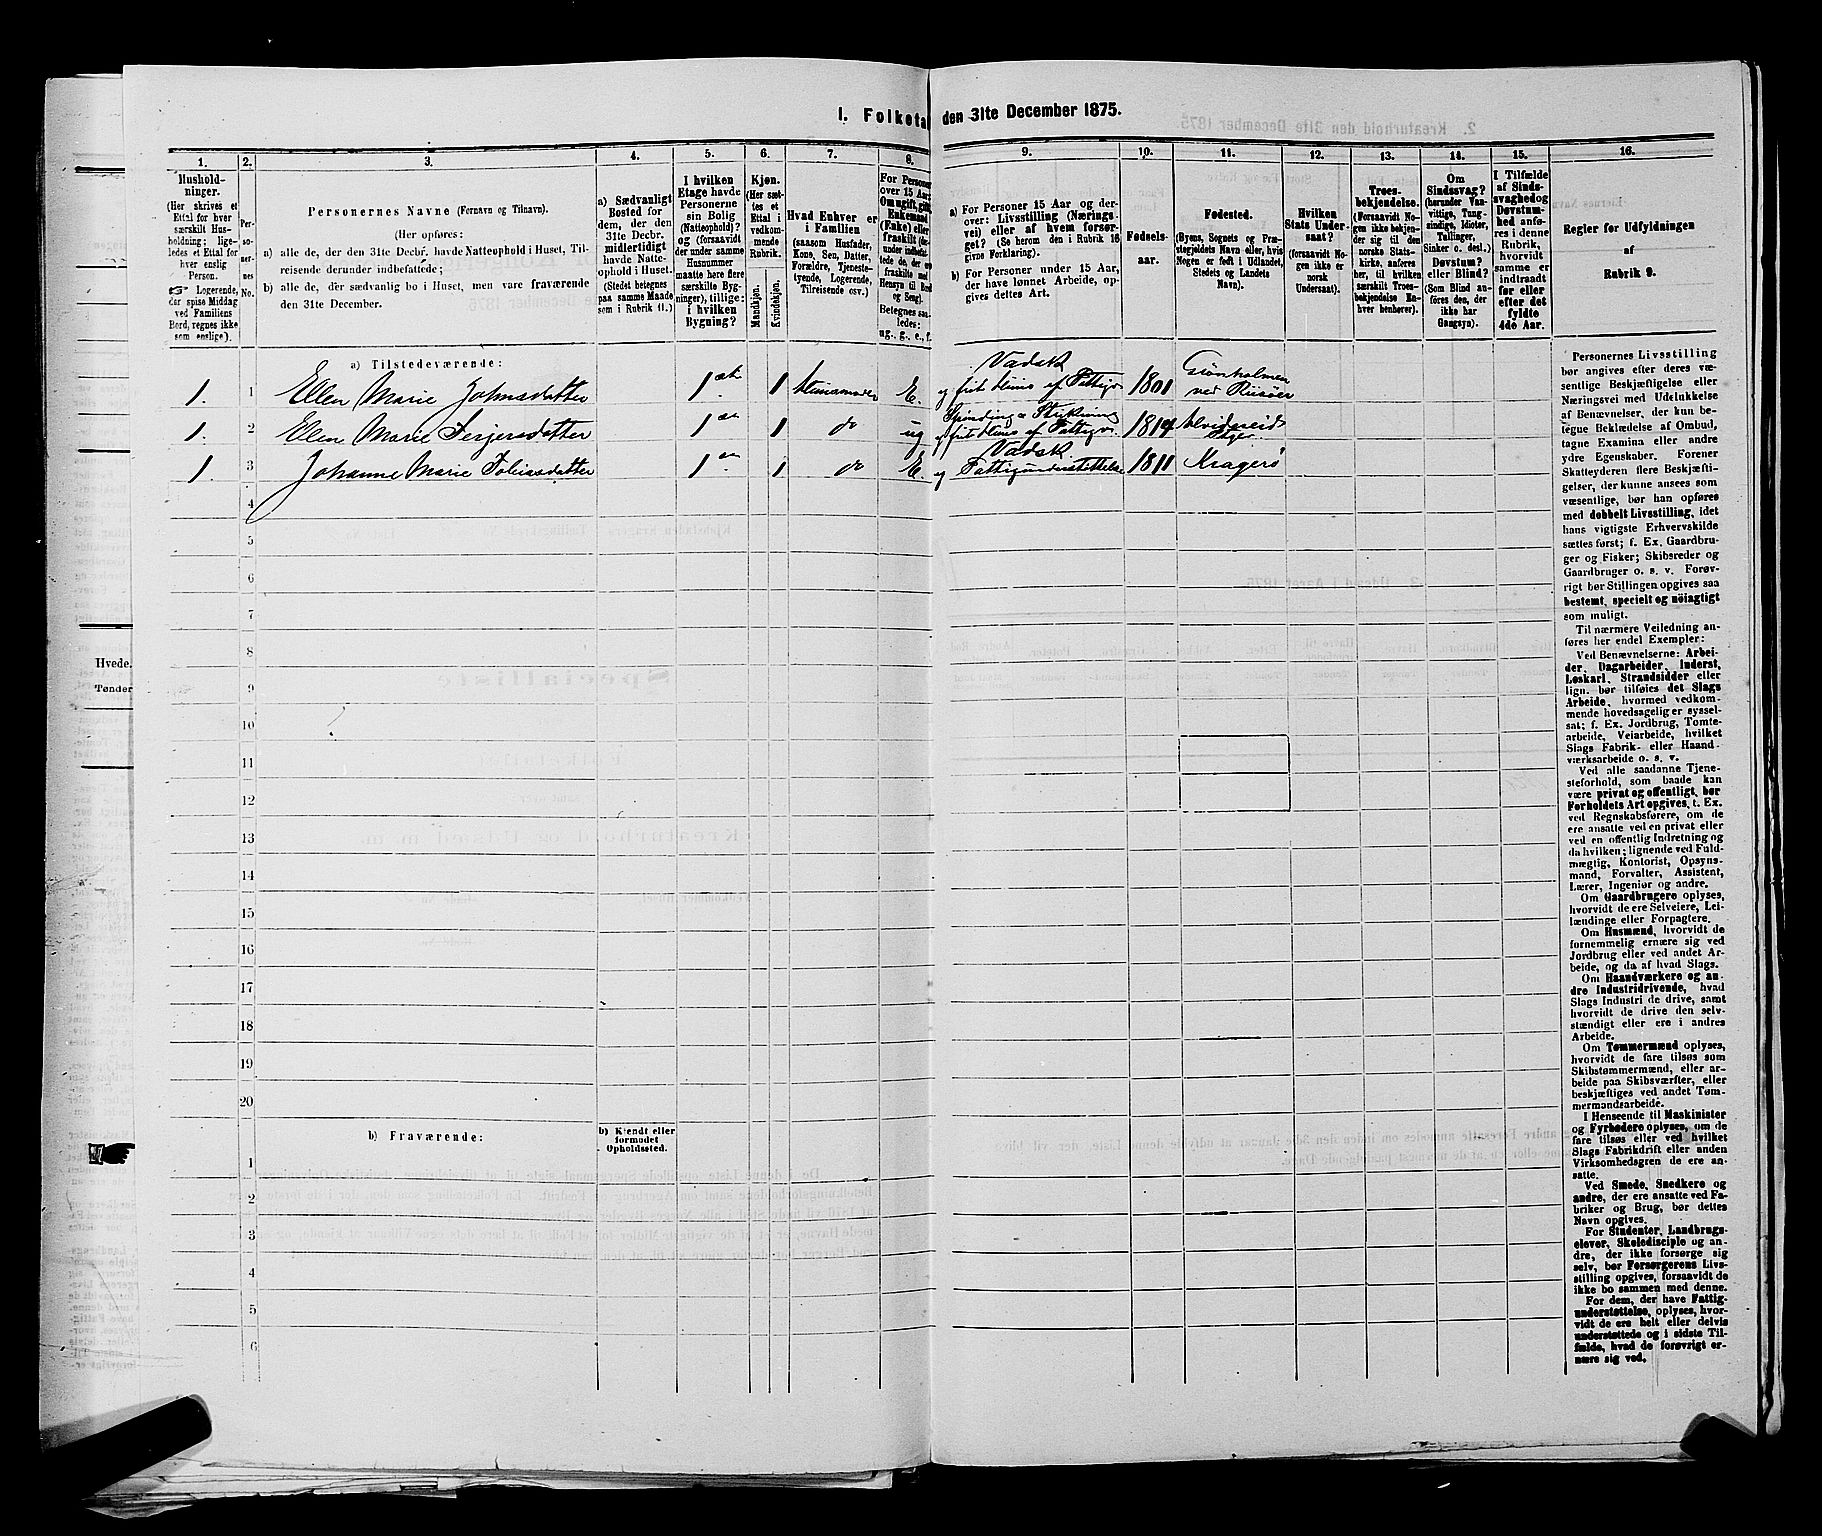 1. Folketal den 31te December 1875.
1.
2.
3.
4.
5.
6.
7.
8.
9.
10.
11.
12.
13.
14.
15.
16.
Hushold-
ninger.
(Her skrives et
Ettal for hver
særskilt Hus-
holdning; lige-
ledes et Ettal for
hver enslig
Person.
☞ Logerende,
der spise Middag
ved Familiens
Bord, regnes ikke
som enslige).
Per-
so-
ner-
nes
No.
Personernes Navne (Fornavn og Tilnavn).
(Her opføres:
a) alle de, der den 31te Decbr. havde Natteophold i Huset, Til-
reisende derunder indbefattede;
b) alle de, der sædvanlig bo i Huset, men vare fraværende
den 31te December.
a) Sædvanligt
Bosted for
dem, der den
31te Decbr.
midlertidigt
havde Natte-
ophold i Huset.
(Stedet betegnes
paa samme Maade
som i Rubrik 11.)
I hvilken
Etage havde
Personerne
sin Bolig
(Natteophold)?
og (forsaavidt
der under samme
Husnummer
maatte høre flere
særskilte Byg-
ninger), tillige:
i hvilken
Bygning?
Kjøn.
(Her sæt-
tes et
Ettal i
vedkom-
mende
Rubrik.
Mandkjøn.
Kvindekjøn.
Hvad Enhver er
i Familien
(saasom Husfader,
Kone, Søn, Datter,
Forældre, Tjeneste-
tyende, Logerende,
Tilreisende osv.)
For Personer
over 15 Aar:
Om ugift, gift,
Enkemand
(Enke) eller
fraskilt
Betegnes saa-
ledes:
ug., g., e., f.
a) For Personer 15 Aar og der-
over: Livsstilling (Nærings-
vei) eller af hvem forsør-
get? (Se herom den i Rubrik 16
givne Forklaring).
b) For Personer under 15 Aar,
der have lønnet Arbeide, op-
gives dettes Art.
Fødsels-
aar.
Fødested.
(Byens, Sognets og Præ-
stegjeldets Navn eller, hvis
Nogen er født i Udlandet,
Stedets og Landets
Navn).
Hvilken
Stats Under-
saat?
(forsaavidt No-
gen ikke er
norsk
Undersaat).
Troes-
bekjendelse.
(Forsaavidt No-
gen ikke bekjen-
der sig til den
norske Stats-
kirke, anføres
her, til hvilken
særskilt Troes-
bekjendelse En-
hver henhører).
Om
Sindssvag?
(herunder Van-
vittige, Tung-
sindige, Idioter,
Tullinger,
Sinker o. desl.)
Døvstum?
eller Blind?
(Som Blind an-
føres den, der
ikke har
Gangsyn).
I Tilfælde
af Sinds-
svaghed og
Døvstum-
hed anfø-
res i denne
Rubrik,
hvorvidt
samme er
indtraadt
før eller
efter det
fyldte
4de Aar.
Regler for Udfyldningen
af
Rubrik 9.
a) Tilstedeværende:
1. 1 Ellen Marie Johnsdatter 1 1 E. Vadsk og frit Huus af Fattigv. 1801 Grönholmen ved Riisöer
1. 2 Ellen Marie Terjersdatter 1 1 do ug Spinding & Strikning og frit Huus af Fattigv. 1814
1. 3 Johanne Marie Tobiasdatter 1 1 do E. Vadsk og Fattigunderstöttelse 1811 Kragerö
4
5
6
7
8
9
10
11
12
13
14
15
16
17
18
19
20
b) Fraværende:
b) Kjendt eller
formodet
Opholdssted.
1
2
3
4
5
6
Personernes Livsstilling
bør angives efter deres væ-
sentlige Beskjæftigelse eller
Næringsvei med Udelukkelse
af Benævnelser, der kun be-
tegne Beklædelse af Ombud,
tagne Examina eller andre
ydre Egenskaber. Forener
Skatteyderen flere Beskjæfti-
gelser, der kunne ansees som
væsentlige, bør han opføres
med dobbelt Livsstilling, idet
hans vigtigste Erhvervskilde
sættes først; f. Ex. Gaardbru-
ger og Fisker; Skibsreder og
Gaardbruger o. s. v. Forøv-
rigt bør Stillingen opgives saa
bestemt, specielt og nøiagtigt
som muligt.
Til nærmere Veiledning an-
føres her endel Exempler:
Ved Benævnelserne: Arbei-
der, Dagarbeider, Inderst,
Løskarl, Strandsidder eller
lign. bør tilføies det Slags
Arbeide, hvormed vedkom-
mende hovedsagelig er syssel-
sat; f. Ex. Jordbrug, Tomte-
arbeide, Veiarbeide, hvilket
Slags Fabrik- eller Haand-
værksarbeide o. s. v.
Ved alle saadanne Tjene-
steforhold, som baade kan
være privat og offentligt, bør
Forholdets Art opgives, t. Ex.
ved Regnskabsførere, om de
ere ansatte ved en privat eller
ved en offentlig Indretning og
da hvilken; lignende ved Fuld-
mægtig, Kontorist, Opsyns-
mand, Forvalter, Assistent,
Lærer, Ingeniør og andre.
Om Gaardbrugere oplyses,
hvorvidt de ere Selveiere, Lei-
lændinge eller Forpagtere.
Om Husmænd, hvorvidt de
fornemmelig ernære sig ved
Jordbrug eller ved andet Ar-
beide, og da af hvad Slags.
Om Haandværkere og an-
dre Industridrivende, hvad
Slags Industri de drive, samt
hvorvidt de drive den selv-
stændigt eller ere i andres
Arbeide.
Om Tømmermænd oplyses,
hvorvidt de fare tilsøs som
Skibstømmermænd, eller ar-
beide paa Skibsværfter, eller
beskjæftiges ved andet Tøm-
mermandsarbeide.
I Henseende til Maskinister
og Fyrbødere oplyses, om de
fare tilsøs eller ved hvilket
Slags Fabrikdrift eller anden
Virksomhedsgren de ere an-
satte.
Ved Smede, Snedkere og
andre, der ere ansatte ved Fa-
briker og Brug, bør dettes
Navn opgives.
For Studenter, Landbrugs-
elever, Skoledisciple og an-
dre, der ikke forsørge sig
selv, bør Forsørgerens Livs-
stilling opgives, forsaavidt de
ikke bo sammen med denne.
For dem, der have Fattig-
understøttelse, oplyses, hvor-
vidt de ere helt eller delvis
understøttede og i sidste Til-
fælde, hvad de forøvrigt er-
nære sig ved.
Hvede.
Tønder